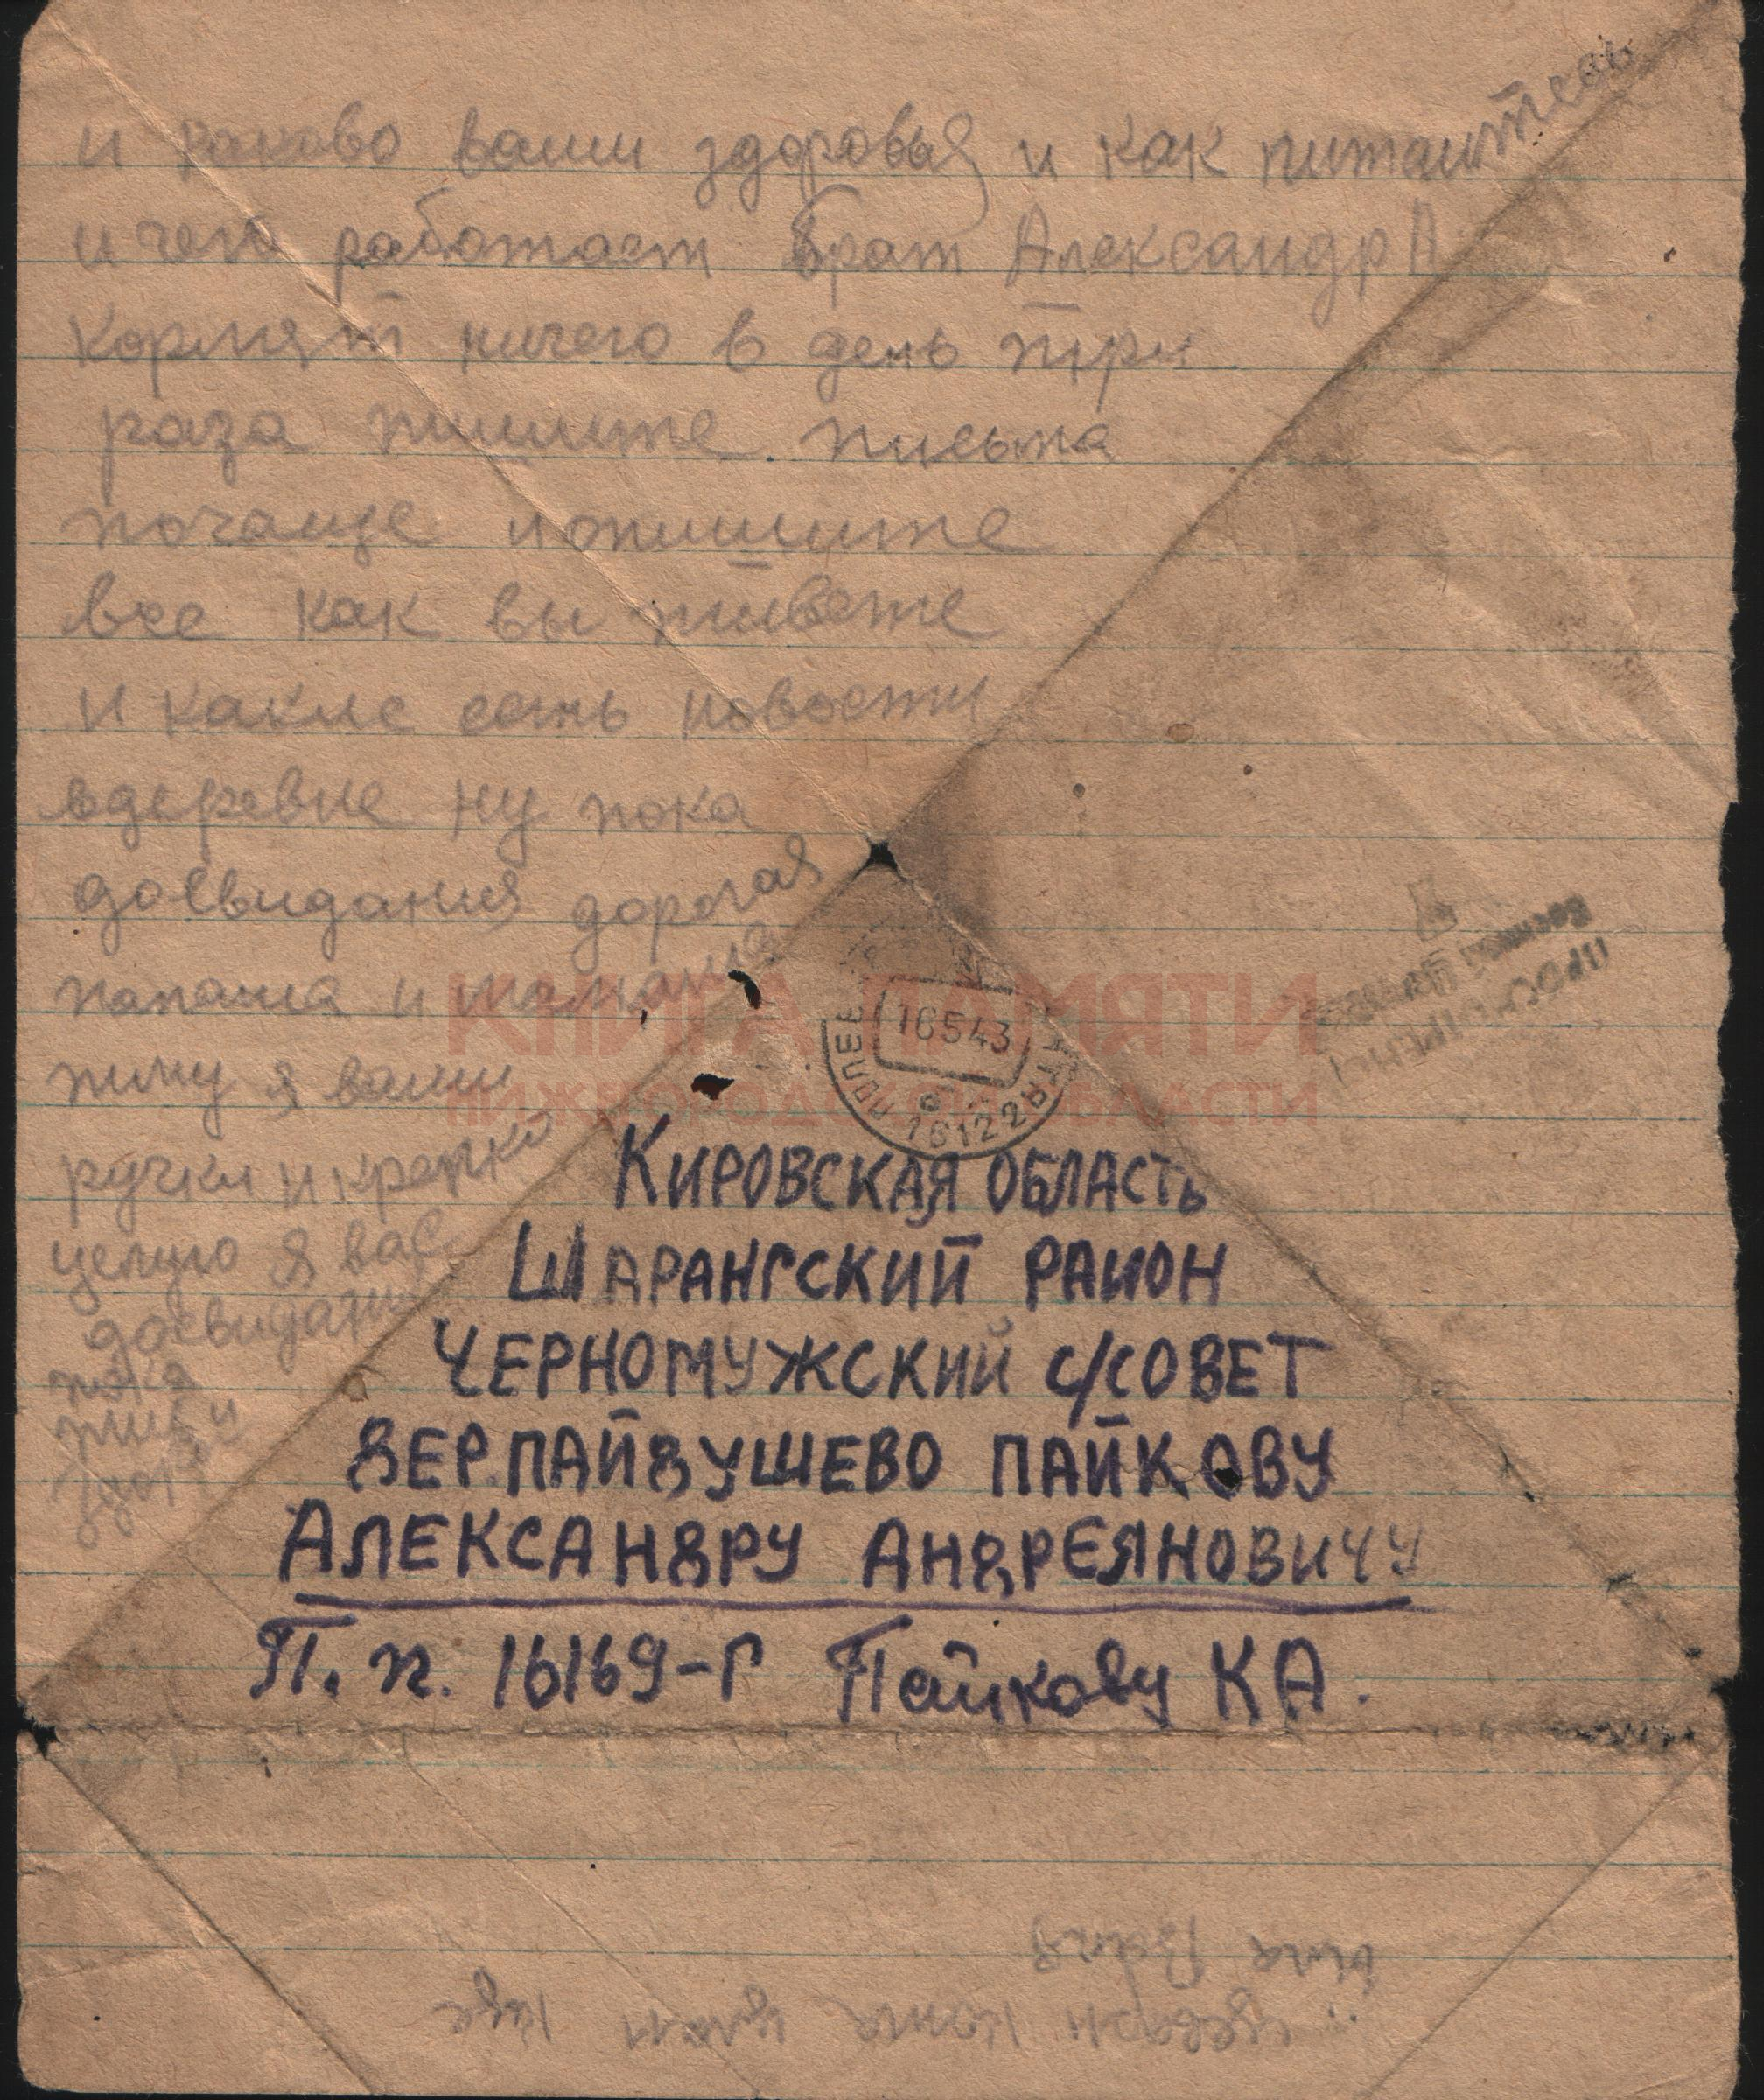 и каково ваши здоровья и как питаитесь
и чем работает брат Александр А
кормят ничего в день три
раза пишите письма
почаще и опишите
все как вы живете
и какие есть новости
вдеревне ну пока
досвидания дорогая
папаша и мамаша
жму я ваши
ручки и крепко
целую я вас
досвидания
пока
жив и
здор
КНИГА ПАМЯТИ
НИЖЕГОРОДСКОЙ ОБЛАСТИ
16 5 43
16122
КИРОВСКАЯ ОБЛАСТЬ
ШАРАНГСКИЙ РАИОН
ЧЕРНОМУЖСКИЙ С/СОВЕТ
ДЕР.ПАЙДУШЕВО ПАЙКОВУ
АЛЕКСАНДРУ АНДРЕЯНОВИЧУ
П.п. 16169-Г Пайкову КА.
ПРОСМОТРЕНО
Военной Цензурой